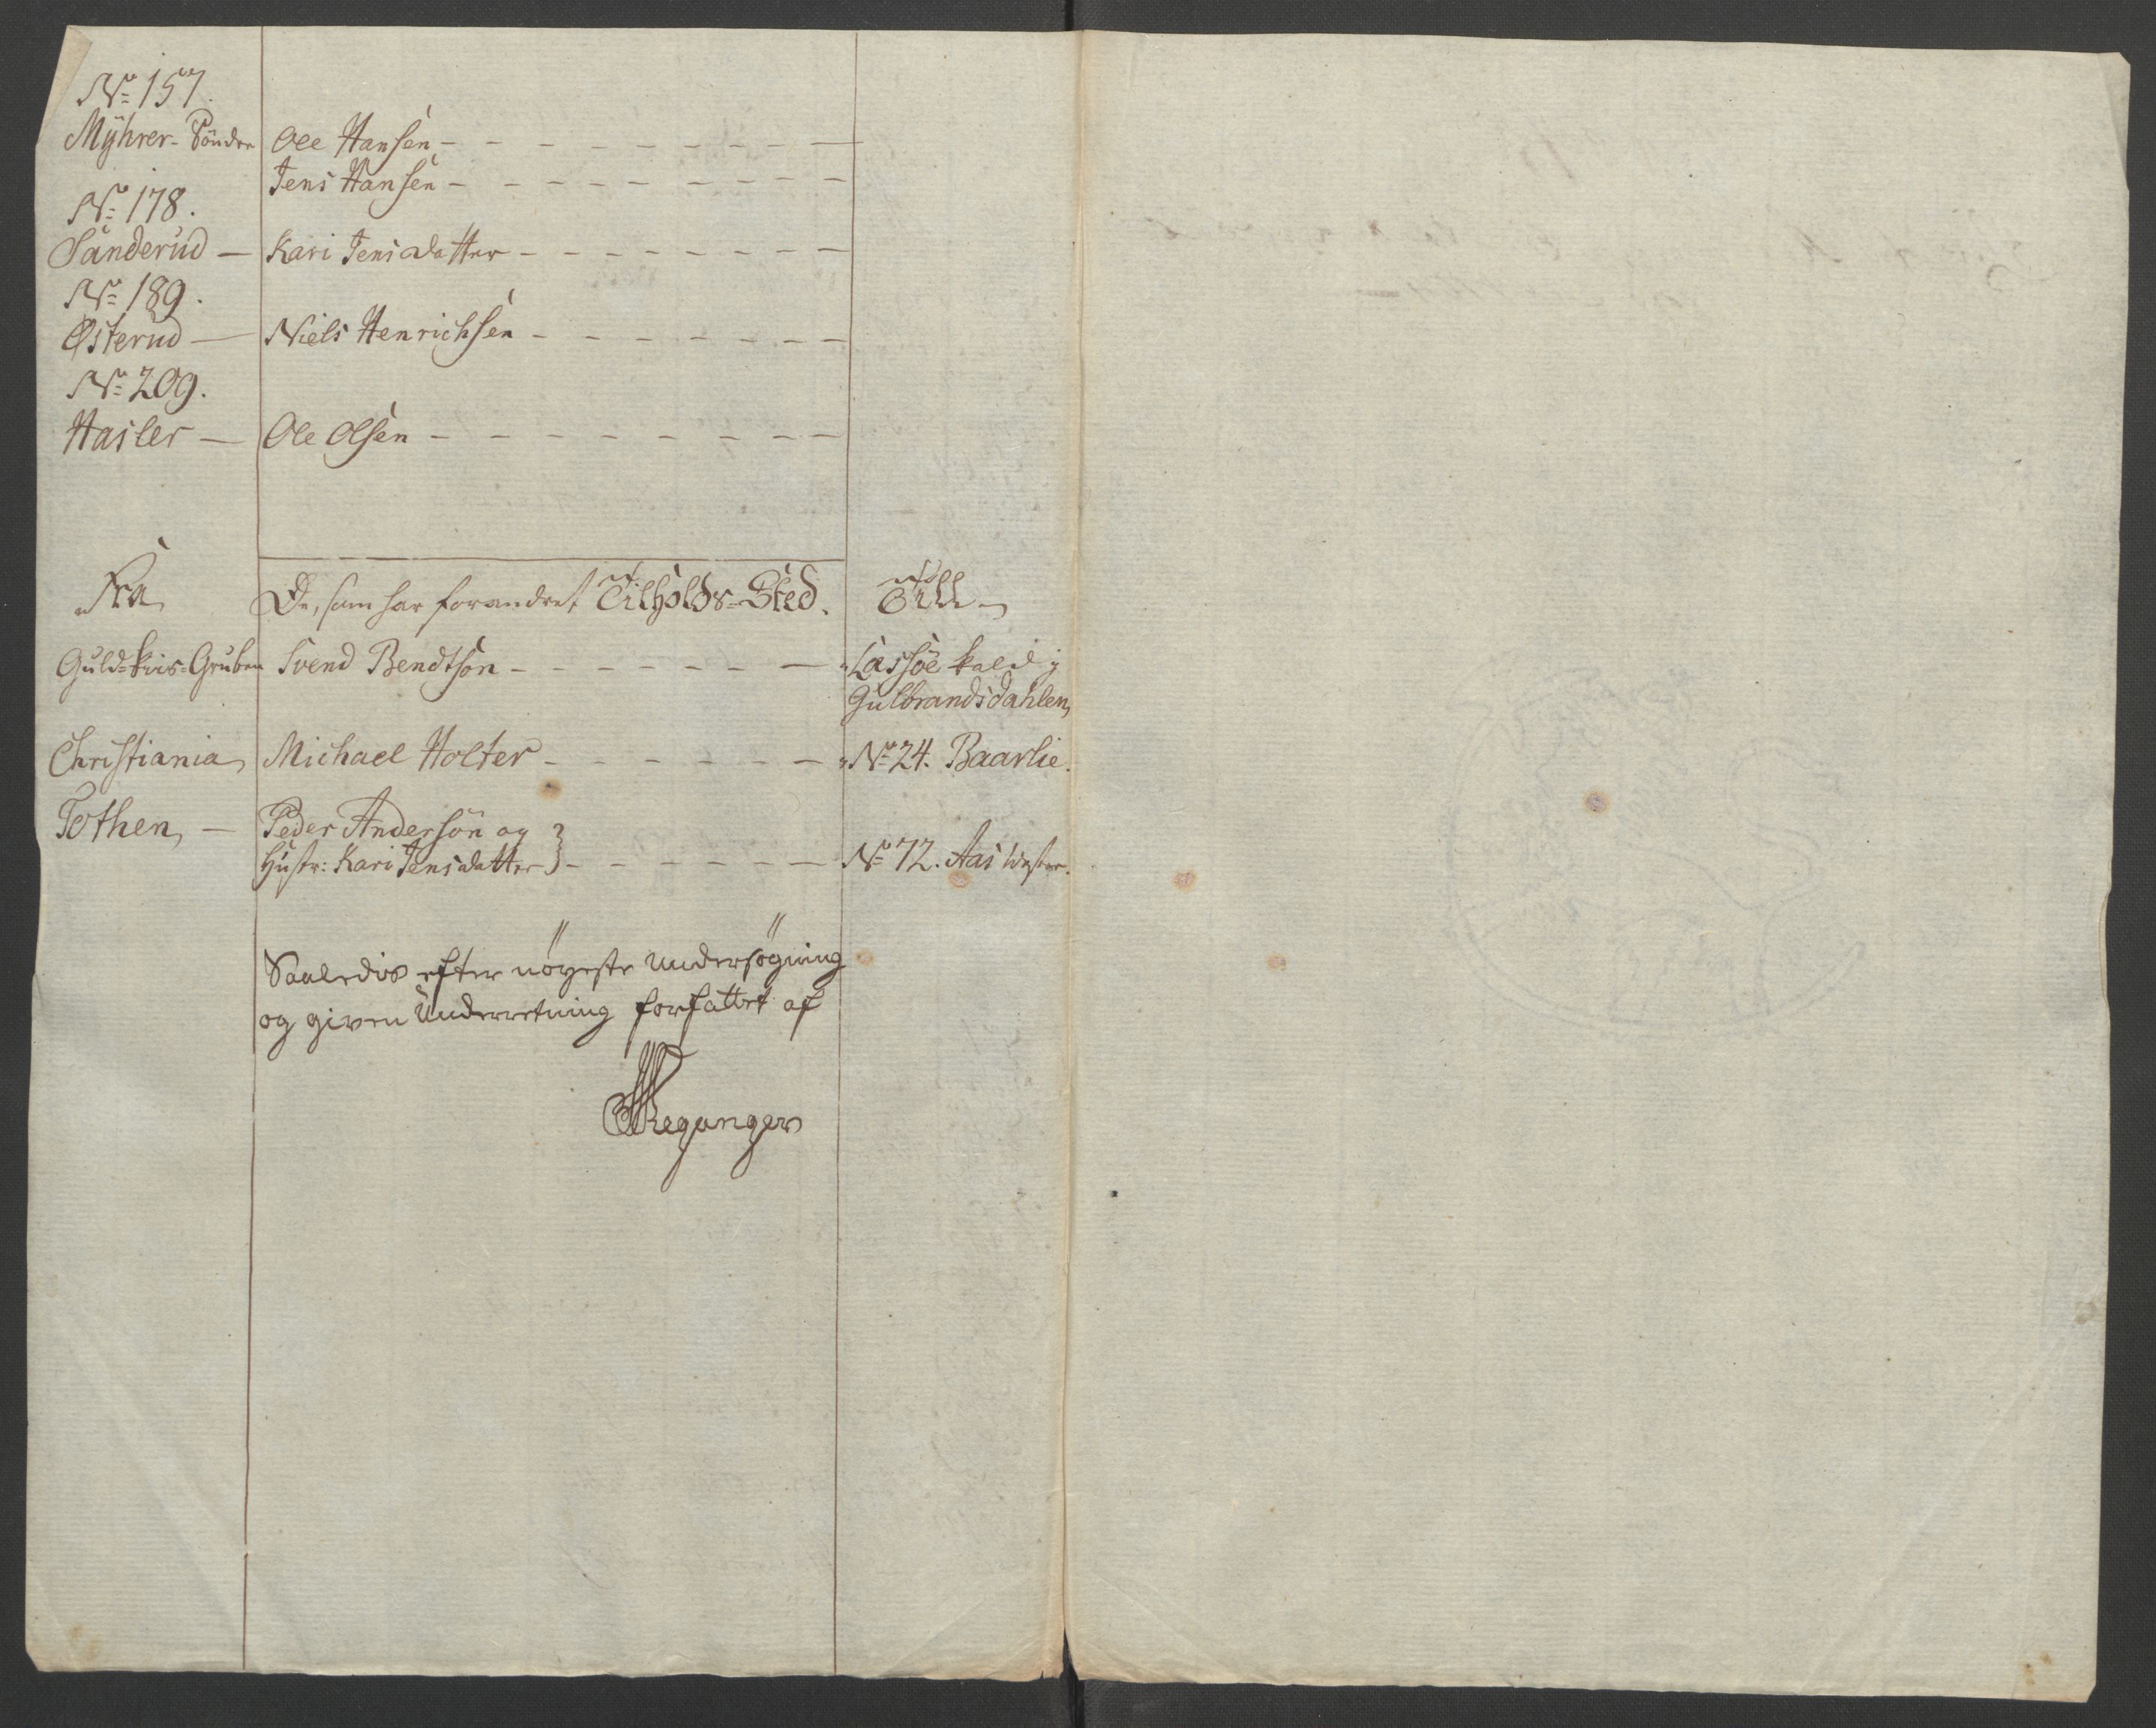 No 157.
Mÿhrer-Söndre Ole Hansen
Jens Hansen
No 178.
Sanderud Kari Jensdatter
No 189.
Østerud Niels Henrichsen
No 209.
Hasler Ole Olsen
Fra De, som har forandret Tilholds-Sted. Till
Guld-kiis-Gruben Svend Bendtsön Lassöe kald i
Gulbrandsdahlen
Christiania Michael Holter No 24. Baarlie.
Tothen, Peder Andersön og
Hustr: Kari Jensdatter No 72. Aas Wester.
Saaledis efter nöyeste Undersögning
og given Underretning forfattet af